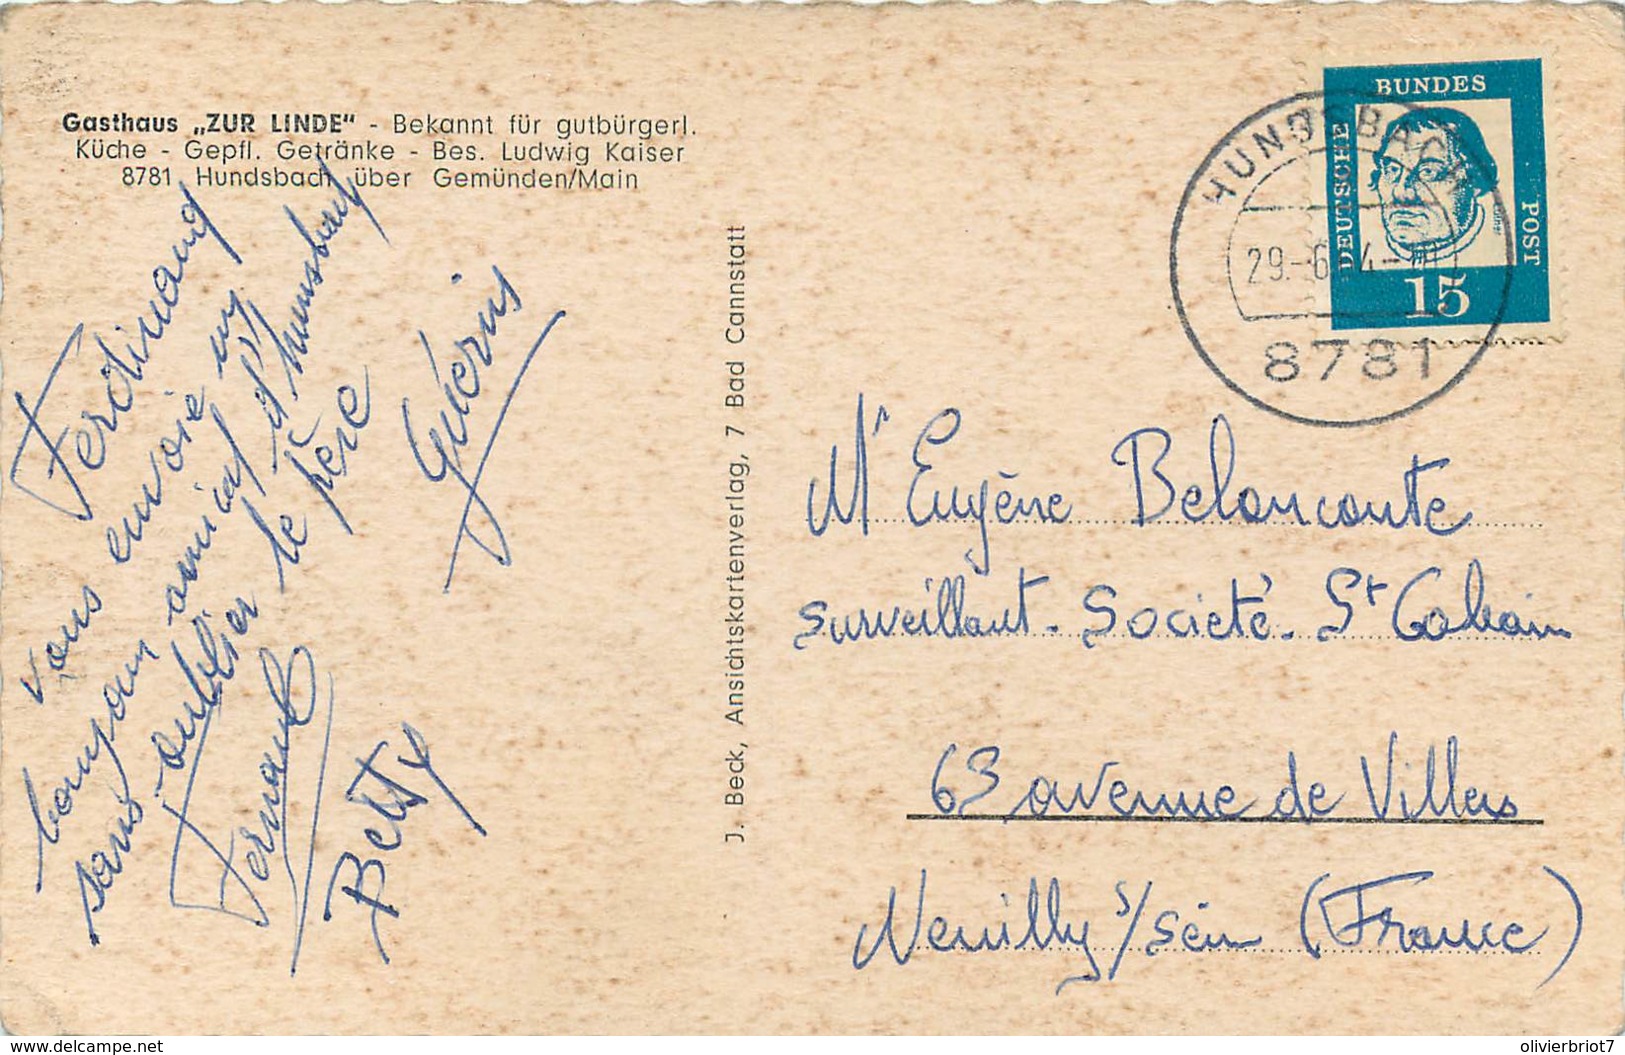 Gasthaus „ZUR LINDE" - Bekannt für gutbürgerl.
Küche - Gepfl. Getränke - Bes. Ludwig Kaiser
8781 Hundsbach über Gemünden/Main
Ferdinand
vous envoie un
bonjour amical d'hunsbach
sans oublier le père
Guérin
Fernand
Betty
J. Beck, Ansichtskartenverlag, 7 Bad Cannstatt
BUNDES
DEUTSCHE
POST
15
HUNDSBACH
29.-6.
8781
Mr Eugène
surveillant. Société. St Gobain
63 avenue de Villers
Neuilly s/sein (France)
www.delcampe.net
olivierbriot7